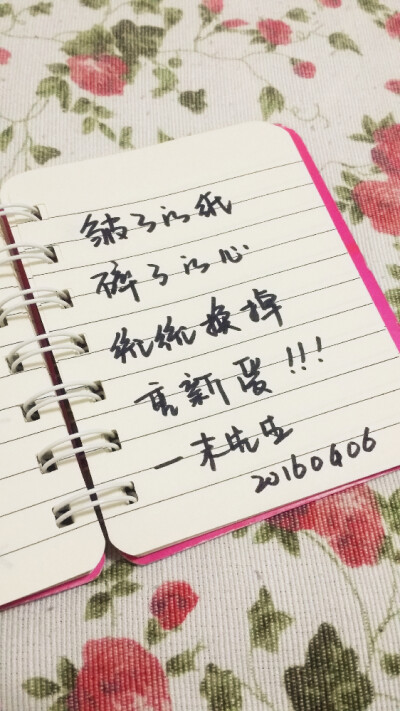 皱了的纸
碎了的心
统统换掉
重新爱!!!
一木先生
20160406